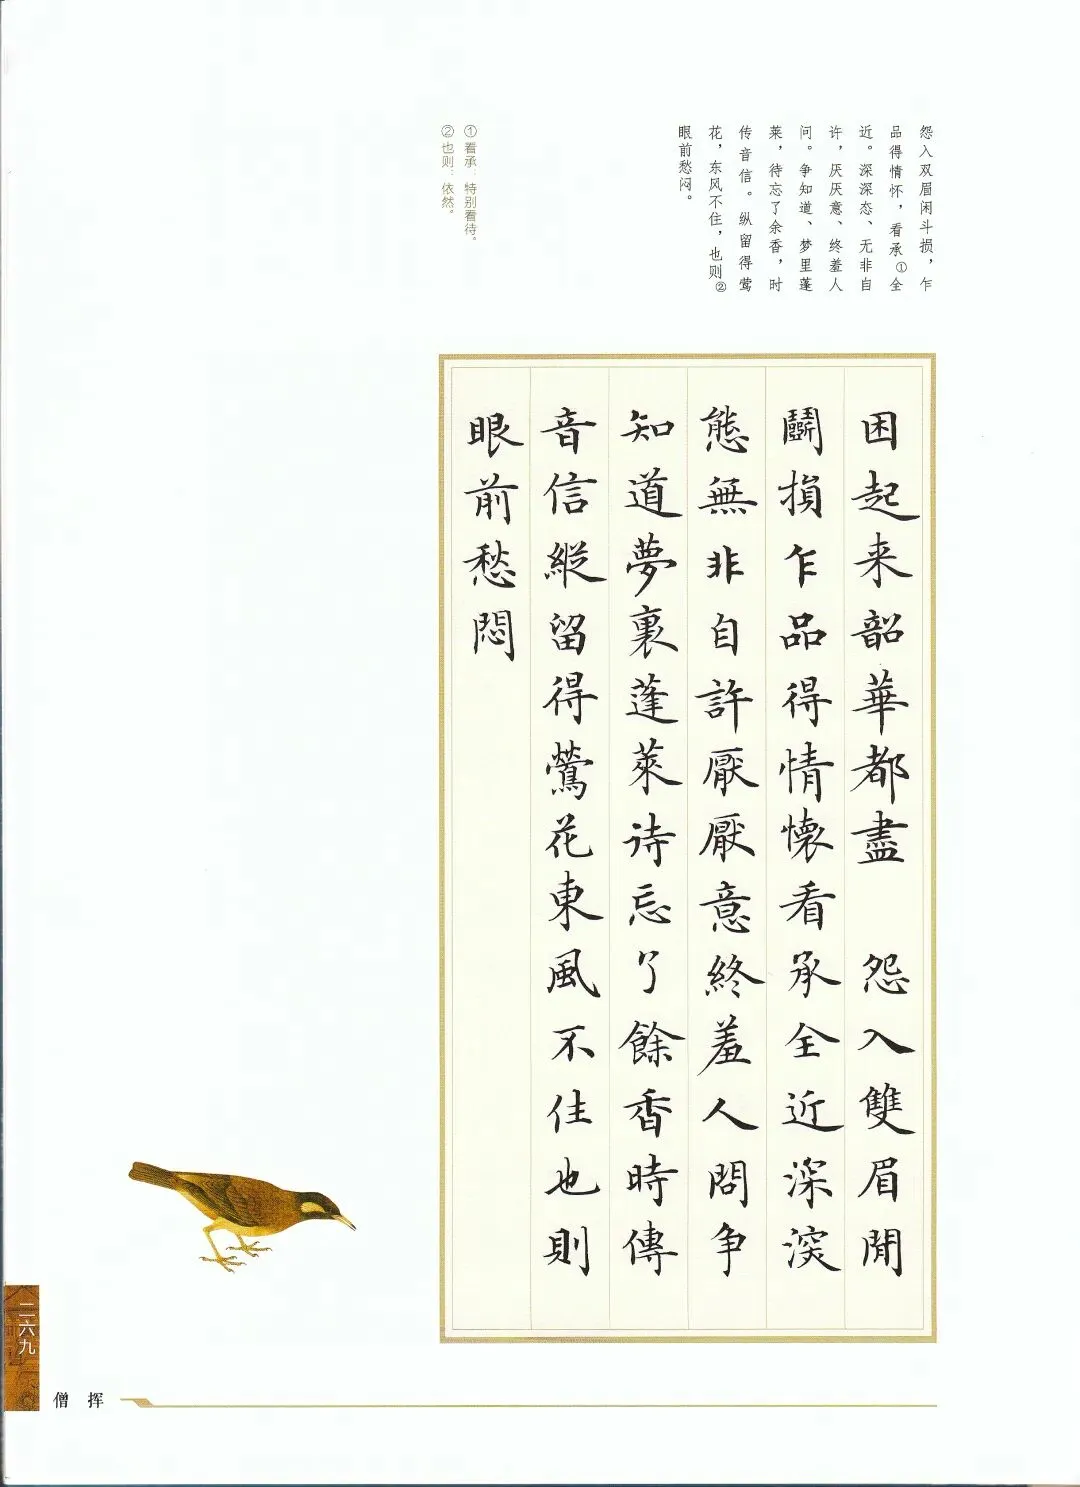 怨入双眉闲斗损，乍
品得情怀，看承①全
近。深深态、无非自
许，厌厌意、终羞人
问。争知道、梦里蓬
莱，待忘了余香，时
传音信。纵留得莺
花，东风不住，也则②
眼前愁闷。
①看承：特别看待。
②也则：依然。
困起来韶華都盡　怨入雙眉閒
鬭損乍品得情懷看承全近深深
態無非自許厭厭意終羞人問争
知道夢裏蓬萊待忘了餘香時傳
音信縱留得鶯花東風不住也則
眼前愁悶
二六九
僧 挥